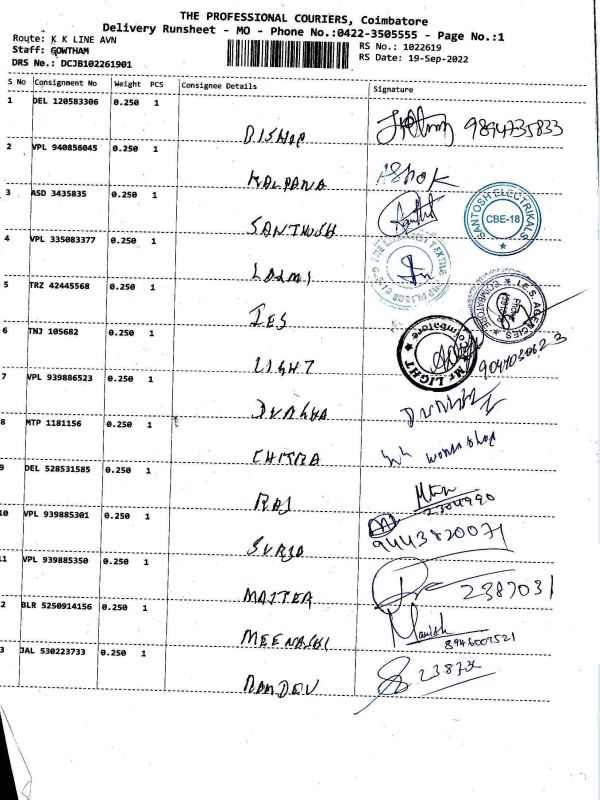 THE PROFESSIONAL COURIERS, Coimbatore
Delivery Runsheet - MO - Phone No.:0422-3505555 - Page No.:1
Route: K K LINE AVN
RS No.: 1022619
Staff: GOWTHAM
RS Date: 19-Sep-2022
DRS No.: DCJB102261901
S No Consignment No Weight PCS Consignee Details Signature
1 DEL 120583306 0.250 1
BISHOP 9894735833
2 VPL 940856045 0.250 1
KALPANA ASHOK
3 ASD 3435835 0.250 1
SANTHOSH
SANTOSH ELECTRIKALS CBE-18
4 VPL 335083377 0.250 1
LAXMI
5 TRZ 42445568 0.250 1
IES
I.E.S AGENCIES COIMBATORE
6 TNJ 105682 0.250 1
LIGHT
Mr. LIGHT Coimbatore
7 VPL 939886523 0.250 1
DURGHA
8 MTP 1181156 0.250 1
CHITRA work shop
9 DEL 528531585 0.250 1
RAJ
2304990
10 VPL 939885301 0.250 1
SURYA 9443820071
11 VPL 939885350 0.250 1
2387031
2 BLR 5250914156 0.250 1
MEENASHI Manish
8946007521
3 JAL 530223733 0.250 1
RAMDEV